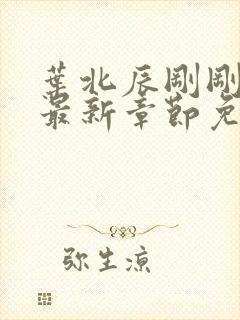 葉北辰剛剛
最新章節免
弥生凉